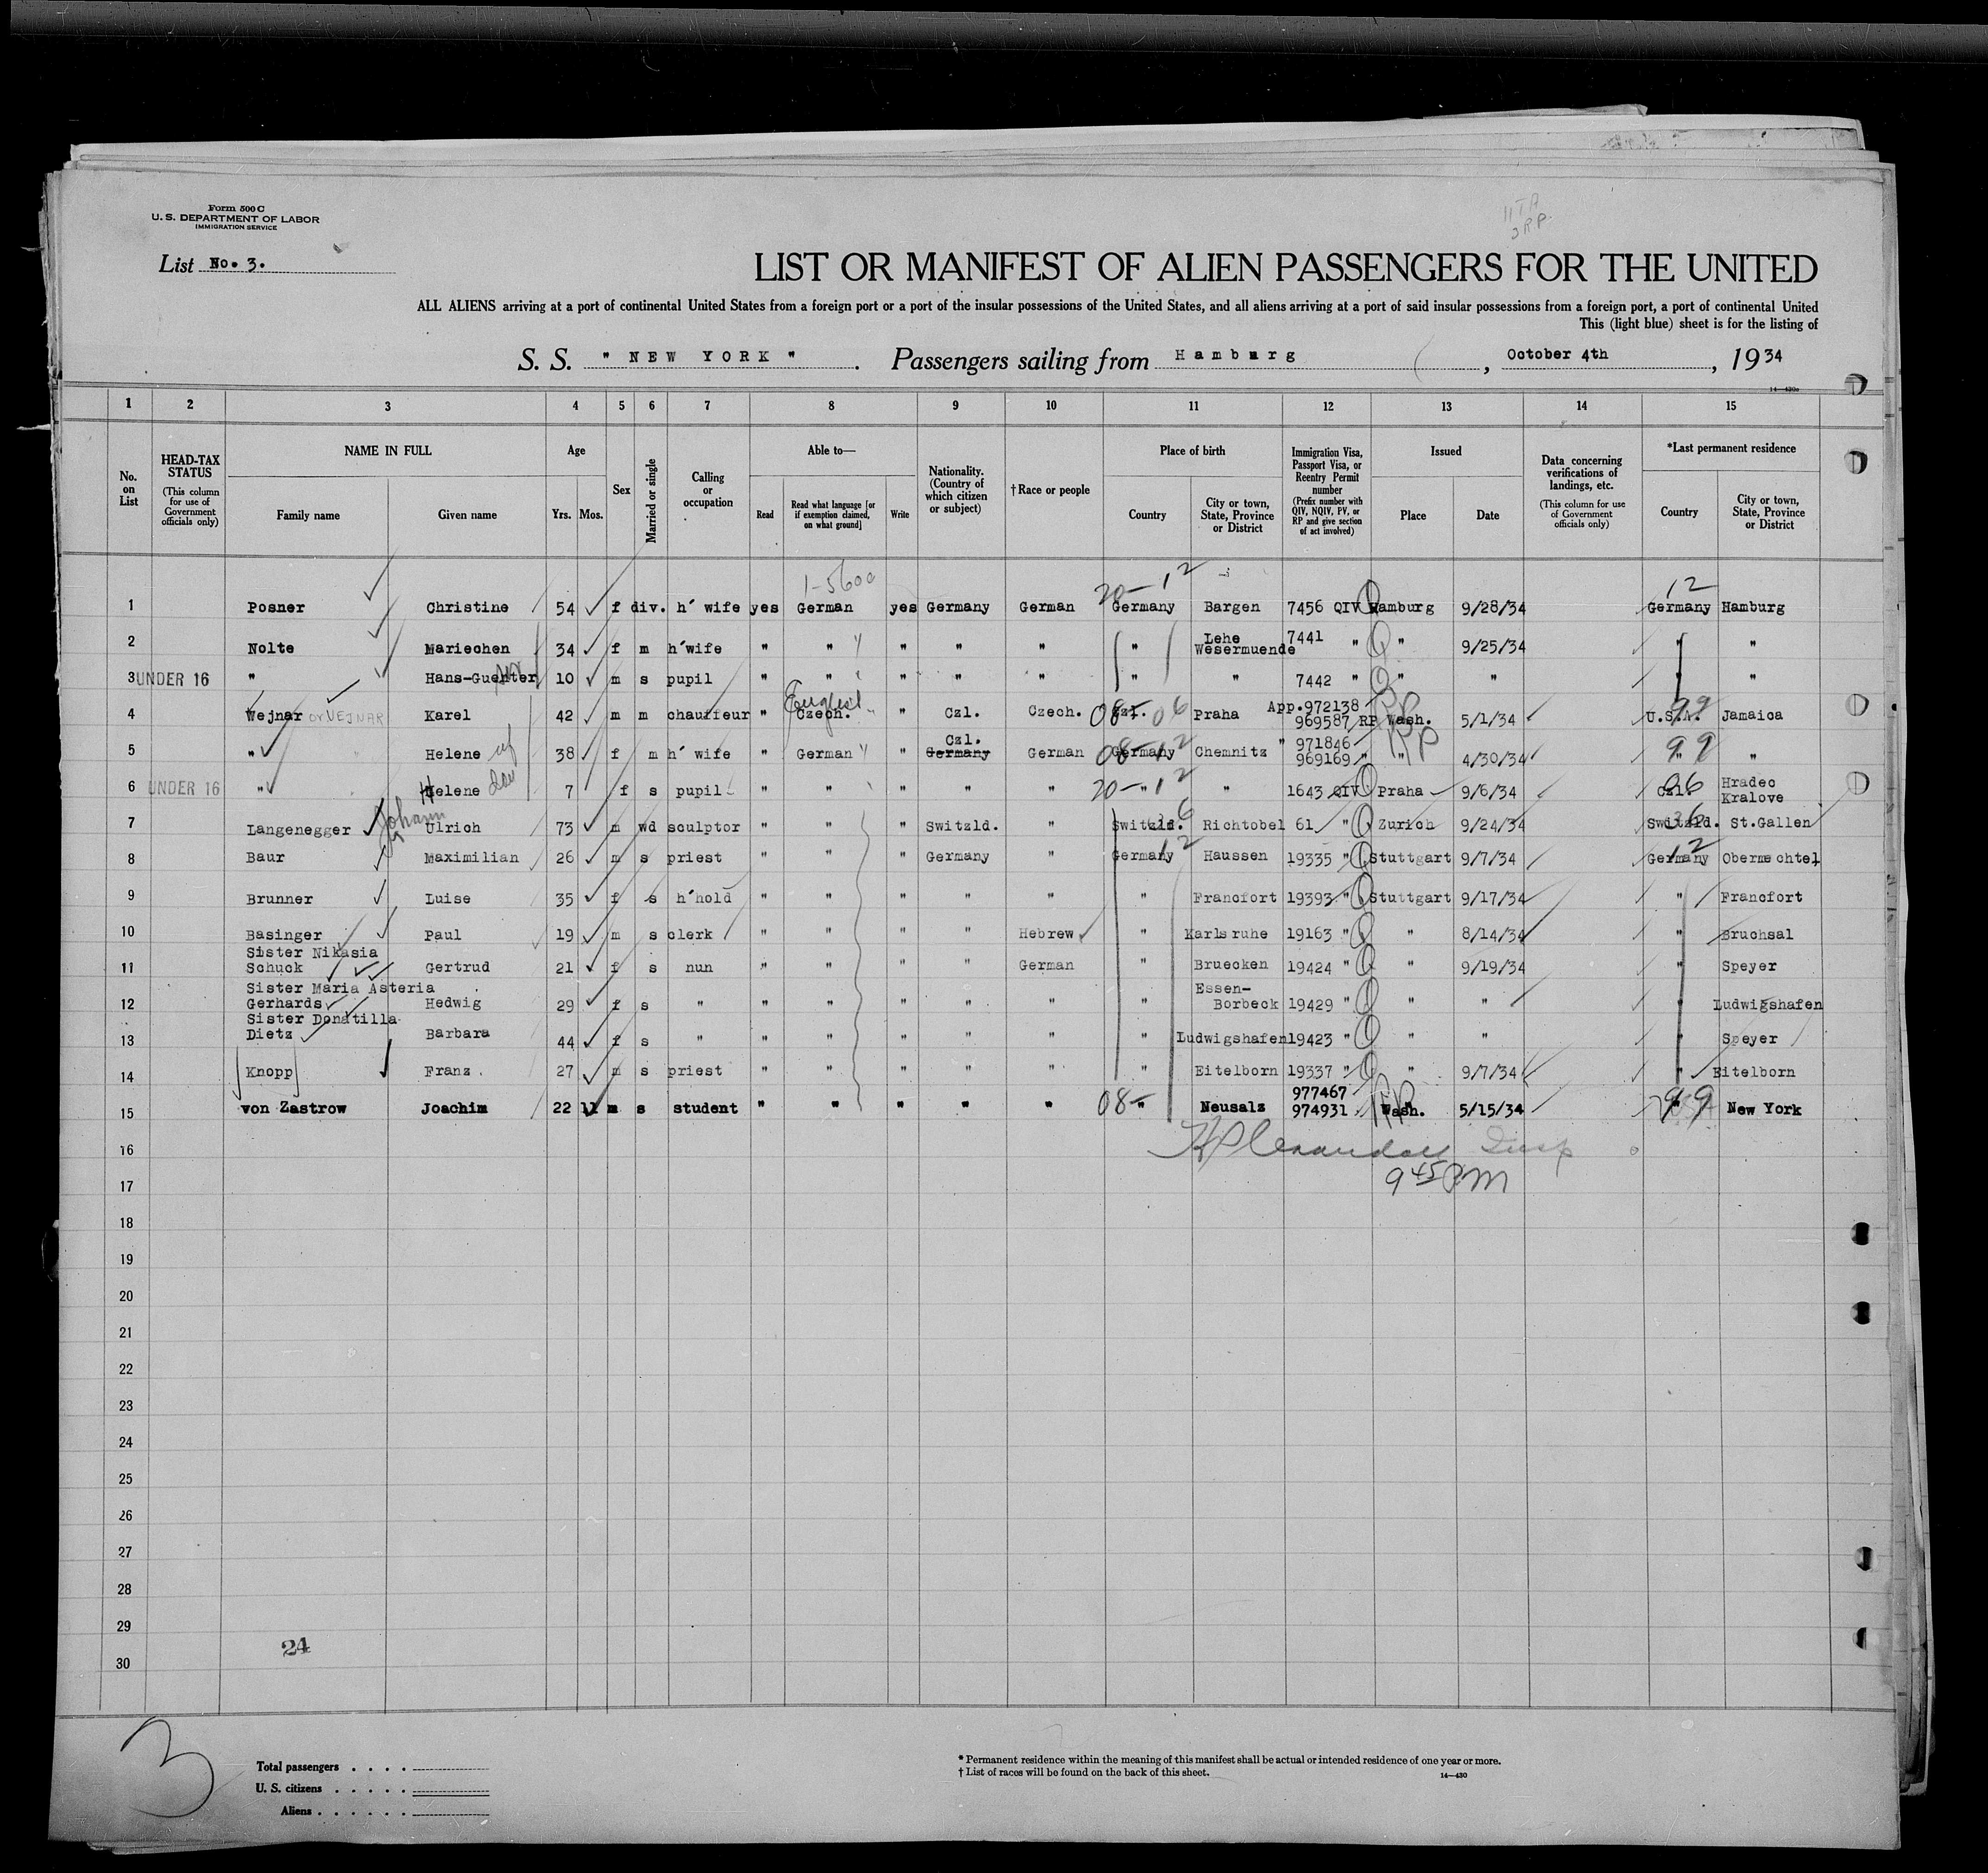 11TA
2RP.
Form 500 C
U. S. DEPARTMENT OF LABOR
IMMIGRATION SERVICE
List No. 3.
LIST OR MANIFEST OF ALIEN PASSENGERS FOR THE UNITED
ALL ALIENS arriving at a port of continental United States from a foreign port or a port of the insular possessions of the United States, and all aliens arriving at a port of said insular possessions from a foreign port, a port of continental United
This (light blue) sheet is for the listing of
S. S. " NEW YORK " . Passengers sailing from Hamburg , October 4th , 19 34
14—430a
1 2 3 4 5 6 7 8 9 10 11 12 13 14 15
No. on List
HEAD-TAX STATUS
(This column for use of Government officials only)
NAME IN FULL
Family name
Given name
Age
Yrs.
Mos.
Sex
Married or single
Calling or occupation
Able to—
Read
Read what language [or if exemption claimed, on what ground]
Write
Nationality. (Country of which citizen or subject)
†Race or people
Place of birth
Country
City or town, State, Province or District
Immigration Visa, Passport Visa, or Reentry Permit number
(Prefix number with QIV, NQIV, PV, or RP and give section of act involved)
Issued
Place
Date
Data concerning verifications of landings, etc.
(This column for use of Government officials only)
*Last permanent residence
Country
City or town, State, Province or District
1-5600 20-12 12
1 Posner Christine 54 f div. h' wife yes German yes Germany German Germany Bargen 7456 QIV Q Hamburg 9/28/34 Germany Hamburg
2 Nolte Mariechen 34 f m h'wife " " " " " " Lehe Wesermuende 7441 " Q " 9/25/34 " "
3 UNDER 16 " Hans-Guenter 10 m s pupil " " " " " " " 7442 " Q " " " "
4 Wejnar or VEJNAR Karel 42 m m chauffeur " English Czech. " Czl. Czech. 08- Czl. 06 Praha App.972138 969587 RP Wash. 5/1/34 U.S.A. 99 Jamaica
5 " Helene wf 38 f m h' wife " German " Czl. Germany German 08-12 Germany Chemnitz " 971846 969169 " RP " 4/30/34 " 99 "
6 UNDER 16 " Helene dau 7 f s pupil " " " " " 20-12 " " 1643 QIV Q Praha 9/6/34 Czl. 06 Hradec Kralove
7 Langenegger Johann Ulrich 73 m wd sculptor " " " Switzld. " Switzld. 36 Richtobel 61 " Q Zurich 9/24/34 Switzld. 36 St.Gallen
8 Baur Maximilian 26 m s priest " " " Germany " Germany 12 Haussen 19335 " Q Stuttgart 9/7/34 Germany 12 Obermechtel
9 Brunner Luise 35 f s h'hold " " " " " " Francfort 19393 " Q Stuttgart 9/17/34 " Francfort
10 Basinger Paul 19 m s clerk " " " " Hebrew " Karlsruhe 19163 " Q " 8/14/34 " Bruchsal
Sister Nikasia
11 Schuck Gertrud 21 f s nun " " " " German " Bruecken 19424 " Q " 9/19/34 " Speyer
Sister Maria Asteria
12 Gerhards Hedwig 29 f s " " " " " " " Essen-Borbeck 19429 " Q " " " Ludwigshafen
Sister Donatilla
13 Dietz Barbara 44 f s " " " " " " " Ludwigshafen 19423 " Q " " " Speyer
14 Knopp Franz 27 m s priest " " " " " " Eitelborn 19337 " Q " 9/7/34 " Eitelborn
15 von Zastrow Joachim 22 11 m s student " " " " " 08- " Neusalz 977467 974931 RP Wash. 5/15/34 99 New York
16
9 45 PM
17
18
19
20
21
22
23
24
25
26
27
28
29
24
30
3
Total passengers . . . .
U. S. citizens . . . . .
Aliens . . . . . .
* Permanent residence within the meaning of this manifest shall be actual or intended residence of one year or more.
† List of races will be found on the back of this sheet.
14—430